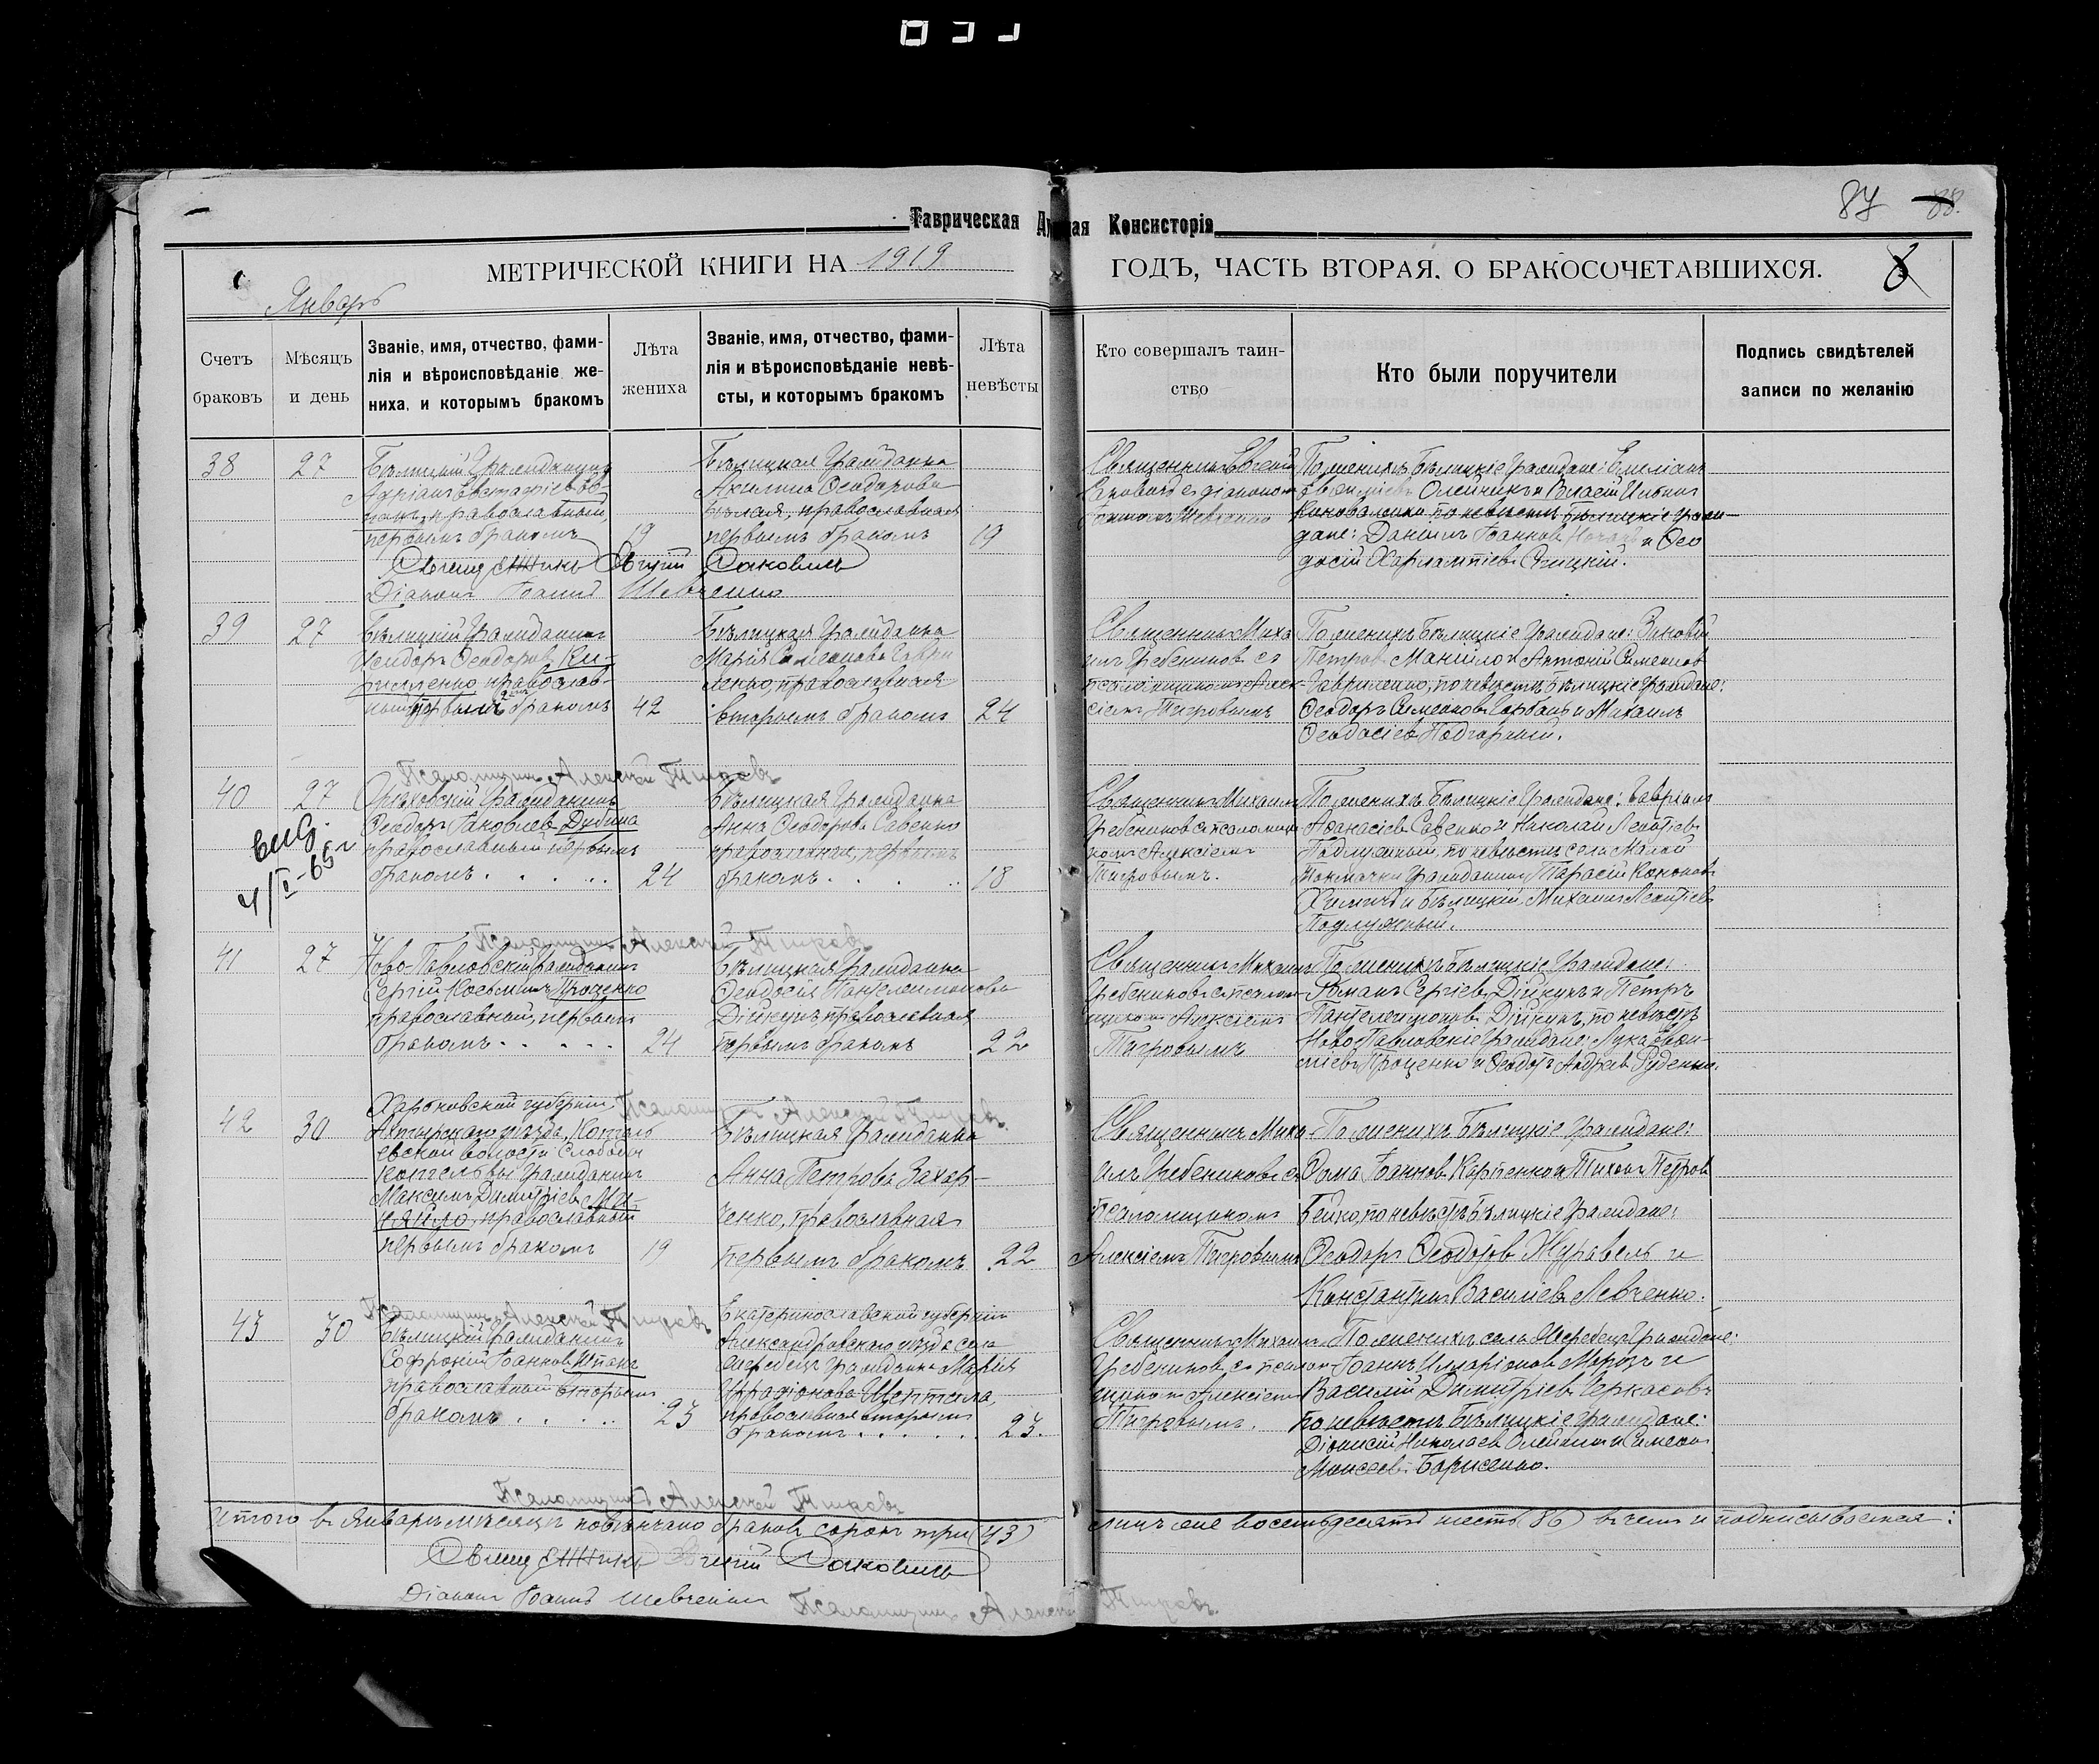 Таврическая Консисторія
87 88.
МЕТРИЧЕСКОЙ КНИГИ НА 1919 ГОДЪ, ЧАСТЬ ВТОРАЯ, О БРАКОСОЧЕТАВШИХСЯ.
Январь
Счетъ браковъ
Мѣсяцъ и день
Званіе, имя, отчество, фами-
лія и вѣроисповѣданіе же-
ниха, и которымъ бракомъ
Лѣта жениха
Званіе, имя, отчество, фами-
лія и вѣроисповѣданіе невѣ-
сты, и которымъ бракомъ
Лѣта невѣсты
Кто совершалъ таин-
ство
Кто были поручители
Подпись свидѣтелей
записи по желанію
38
27
Бѣлицкій Гражданинъ
Адріанъ Евстафіевъ
православный,
первымъ бракомъ
19
Бѣлицкая Гражданка
Акилина Ѳеодорова
Бѣлая, православная
первымъ бракомъ
19
Священникъ Евгеній
съ діакономъ
Іоанномъ Шевченко
По женихѣ Бѣлицкіе Граждане: Емеліанъ
Евѳиміевъ Олейникъ и Власій Ильинъ
Коноваленко по невѣстѣ Бѣлицкіе граж-
дане: Даніилъ Іоанновъ и Ѳео
досій Харлампіевъ
Священникъ Евгеній
Діаконъ Іоаннъ Шевченко
39
27
Бѣлицкій Гражданинъ
Исидоръ Ѳеодоровъ Ки-
риленко православ-
ный бракомъ
42
Бѣлицкая Гражданка
Марія Симеонова Гаври
ленко, православная
вторымъ бракомъ
24
Священникъ Миха
илъ Гребениковъ съ
псаломщикомъ Алек-
сіемъ Тигровымъ
По женихѣ Бѣлицкіе Граждане: Зиновій
Петровъ Манійло и Антоній Симеоновъ
Гавриленко, по невѣстѣ Бѣлицкіе Граждане:
Ѳеодоръ Симеоновъ Горбань и Михаилъ
Ѳеодосіевъ Подгорный.
Псаломщикъ Алексѣй Тигровъ
40
27
4/I-65 г
Орѣховскій Гражданинъ
Ѳеодоръ Яковлевъ Дубина
православный первымъ
бракомъ . . . . .
24
Бѣлицкая Гражданка
Анна Ѳеодорова Савенко
православная, первымъ
бракомъ . . . . .
18
Священникъ Михаилъ
Гребениковъ съ псаломщи
комъ Алексіемъ
Тигровымъ.
По женихѣ Бѣлицкіе Граждане: Гавріилъ
Аѳанасіевъ Савенко и Николай Леонтіевъ
Подлужный, по невѣстѣ села Малой
Токмачки Гражданинъ Тарасій Кононовъ
и Бѣлицкій Михаилъ Леонтіевъ
Подлужный.
Псаломщикъ Алексѣй Тигровъ
41
27
Ново-Павловскій Гражданинъ
Сергій Косьминъ Проценко
православный, первымъ
бракомъ . . . . .
24
Бѣлицкая Гражданка
Ѳеодосія Пантелеимонова
Дійкунъ, православная
первымъ бракомъ
22
Священникъ Михаилъ
Гребениковъ съ псалом-
щикомъ Алексіемъ
Тигровымъ
По женихѣ Бѣлицкіе Граждане:
Романъ Сергіевъ Дійкунъ и Петръ
Пантелеимоновъ Дійкунъ, по невѣстѣ
Ново Павловскіе Граждане: Лука Евѳи-
міевъ Проценко и Ѳеодотъ Андреевъ Руденко.
Псаломщикъ Алексѣй Тигровъ
42
30
Харьковской губерніи,
Ахтырскаго уѣзда, Котель
евской волости Слободы
Котельвы Гражданинъ
Максимъ Димитріевъ
православный
первымъ бракомъ
19
Бѣлицкая Гражданка
Анна Петрова Захар-
ченко, православная
первымъ бракомъ
22
Священникъ Миха
илъ Гребениковъ съ
псаломщикомъ
Алексіемъ Тигровымъ
По женихѣ Бѣлицкіе Граждане:
Ѳома Іоанновъ Карпенко и Тихонъ Петровъ
Бейко, по невѣстѣ Бѣлицкіе Граждане:
Ѳеодоръ Ѳеодотовъ Журавель и
Константинъ Василіевъ Левченко.
Псаломщикъ Алексѣй Тигровъ
43
30
Бѣлицкій Гражданинъ
Софроній Іоанновъ Шпакъ
православный вторымъ
бракомъ . . . . .
23
Екатеринославской губерніи
Александровскаго уѣзда села
Жеребецъ Гражданка Марія
Иродіонова Шептала,
православная вторымъ
бракомъ . . . . .
23.
Священникъ Михаилъ
Гребениковъ съ псалом
щикомъ Алексіемъ
Тигровымъ.
По женихѣ села Жеребецъ Граждане:
Іоаннъ Илларіоновъ Морозъ и
Василій Димитріевъ Черкасовъ
по невѣстѣ Бѣлицкіе Граждане:
Діонисій Николаевъ Олейникъ и Симеонъ
Моисеевъ Борисенко.
Псаломщикъ Алексѣй Тигровъ
Итого въ Январѣ мѣсяцѣ повѣнчано браковъ сорокъ три (43) лицъ восемьдесятъ шесть (86) въ чемъ и подписываемся:
Священникъ Евгеній
Діаконъ Іоаннъ Шевченко
Псаломщикъ Алексѣй Тигровъ.